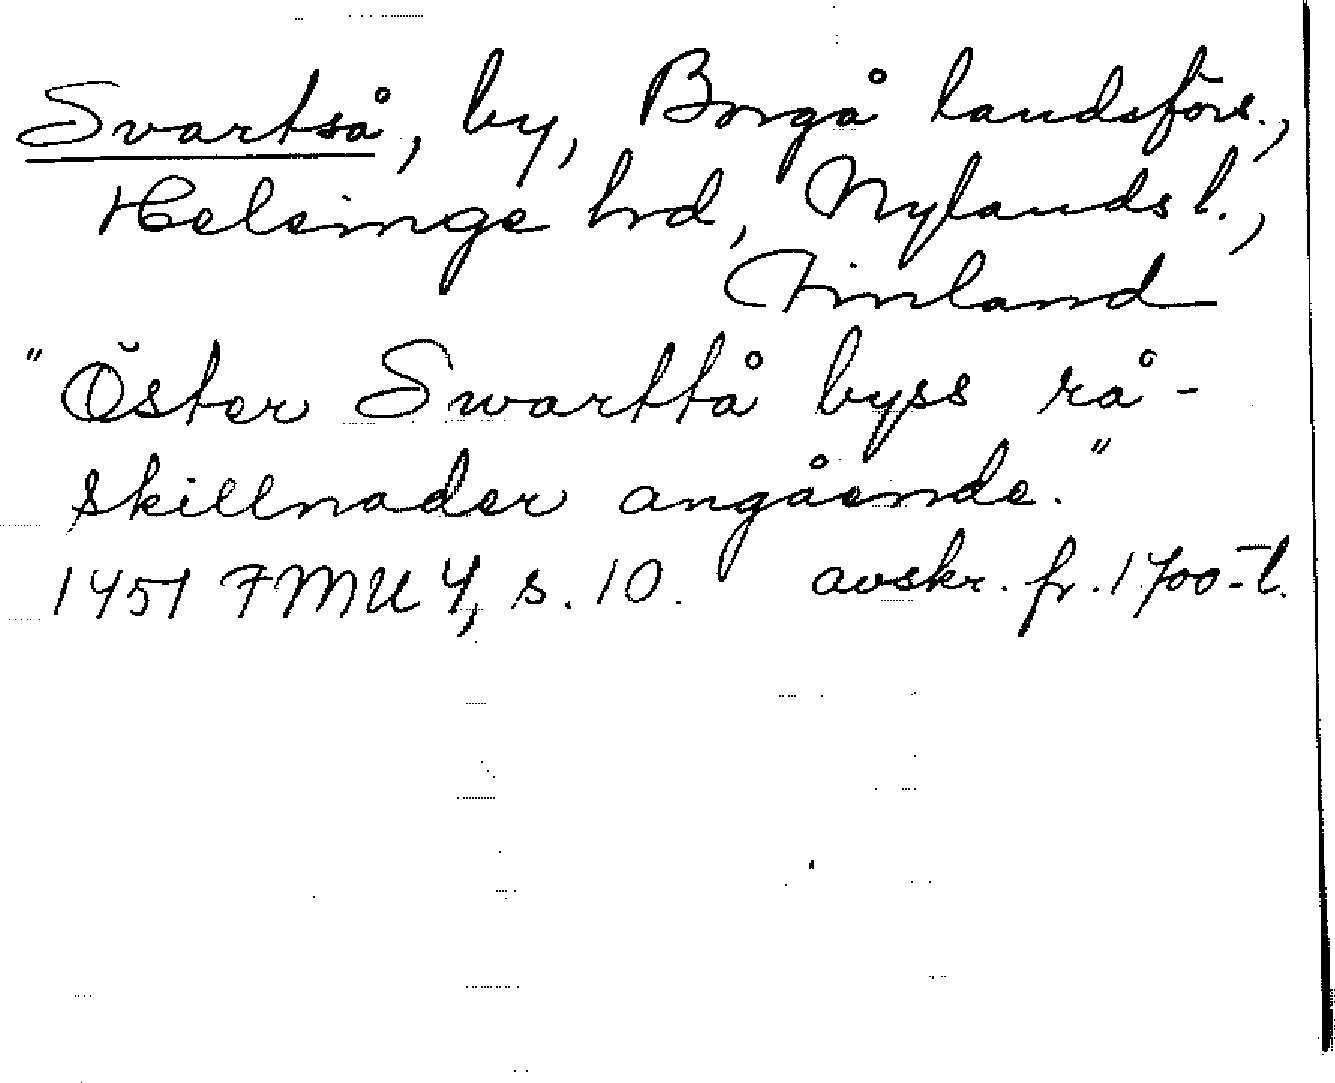 Svartså, by, Borgå landsförs.,
Helsinge hrd, Nylands l.,
Finland
"Öster Swarttå byss rå-
skillnader angående."
1451 FMU 4, s. 10. avskr. fr. 1700-t.